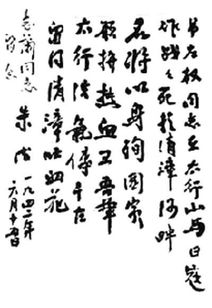 吊左权同志在太行山与日寇
作战々死於清漳河畔
名将以身殉国家
願拼热血卫吾華
太行浩氣傳千古
留得清漳吐血花
志蘭同志
留念
朱德
一九四二年
六月十五日